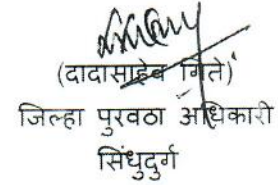 (दादासाहेब गिते)
जिल्हा पुरवठा अधिकारी
सिंधुदुर्ग